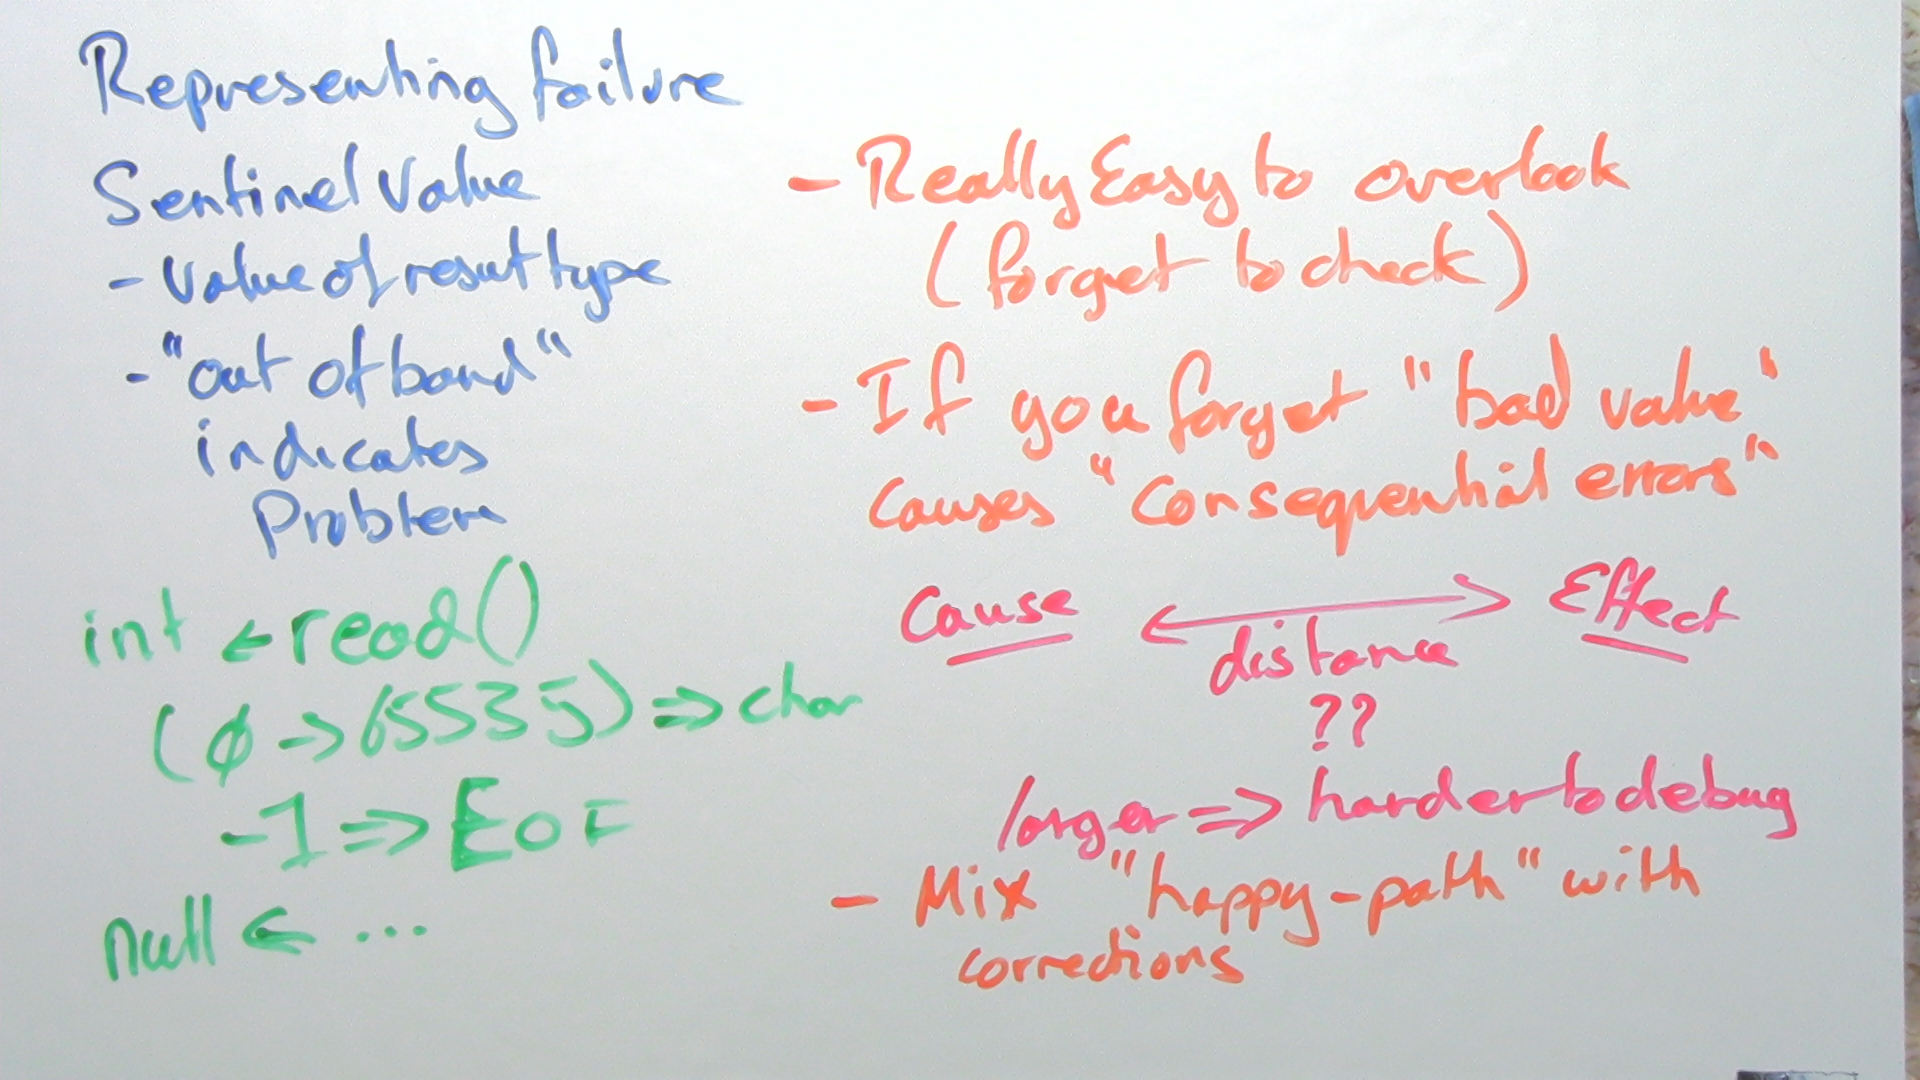 Representing failure
Sentinel Value
- Value of result type
- "out of band"
indicates
Problem
int ← read()
(0 → 65535) ⇒ char
-1 ⇒ EOF
null ← ...
- Really Easy to overlook
(forget to check)
- If you forget "bad value"
causes "consequential errors"
Cause ↔ Effect
distance
??
larger ⇒ harder to debug
- Mix "happy-path" with
corrections